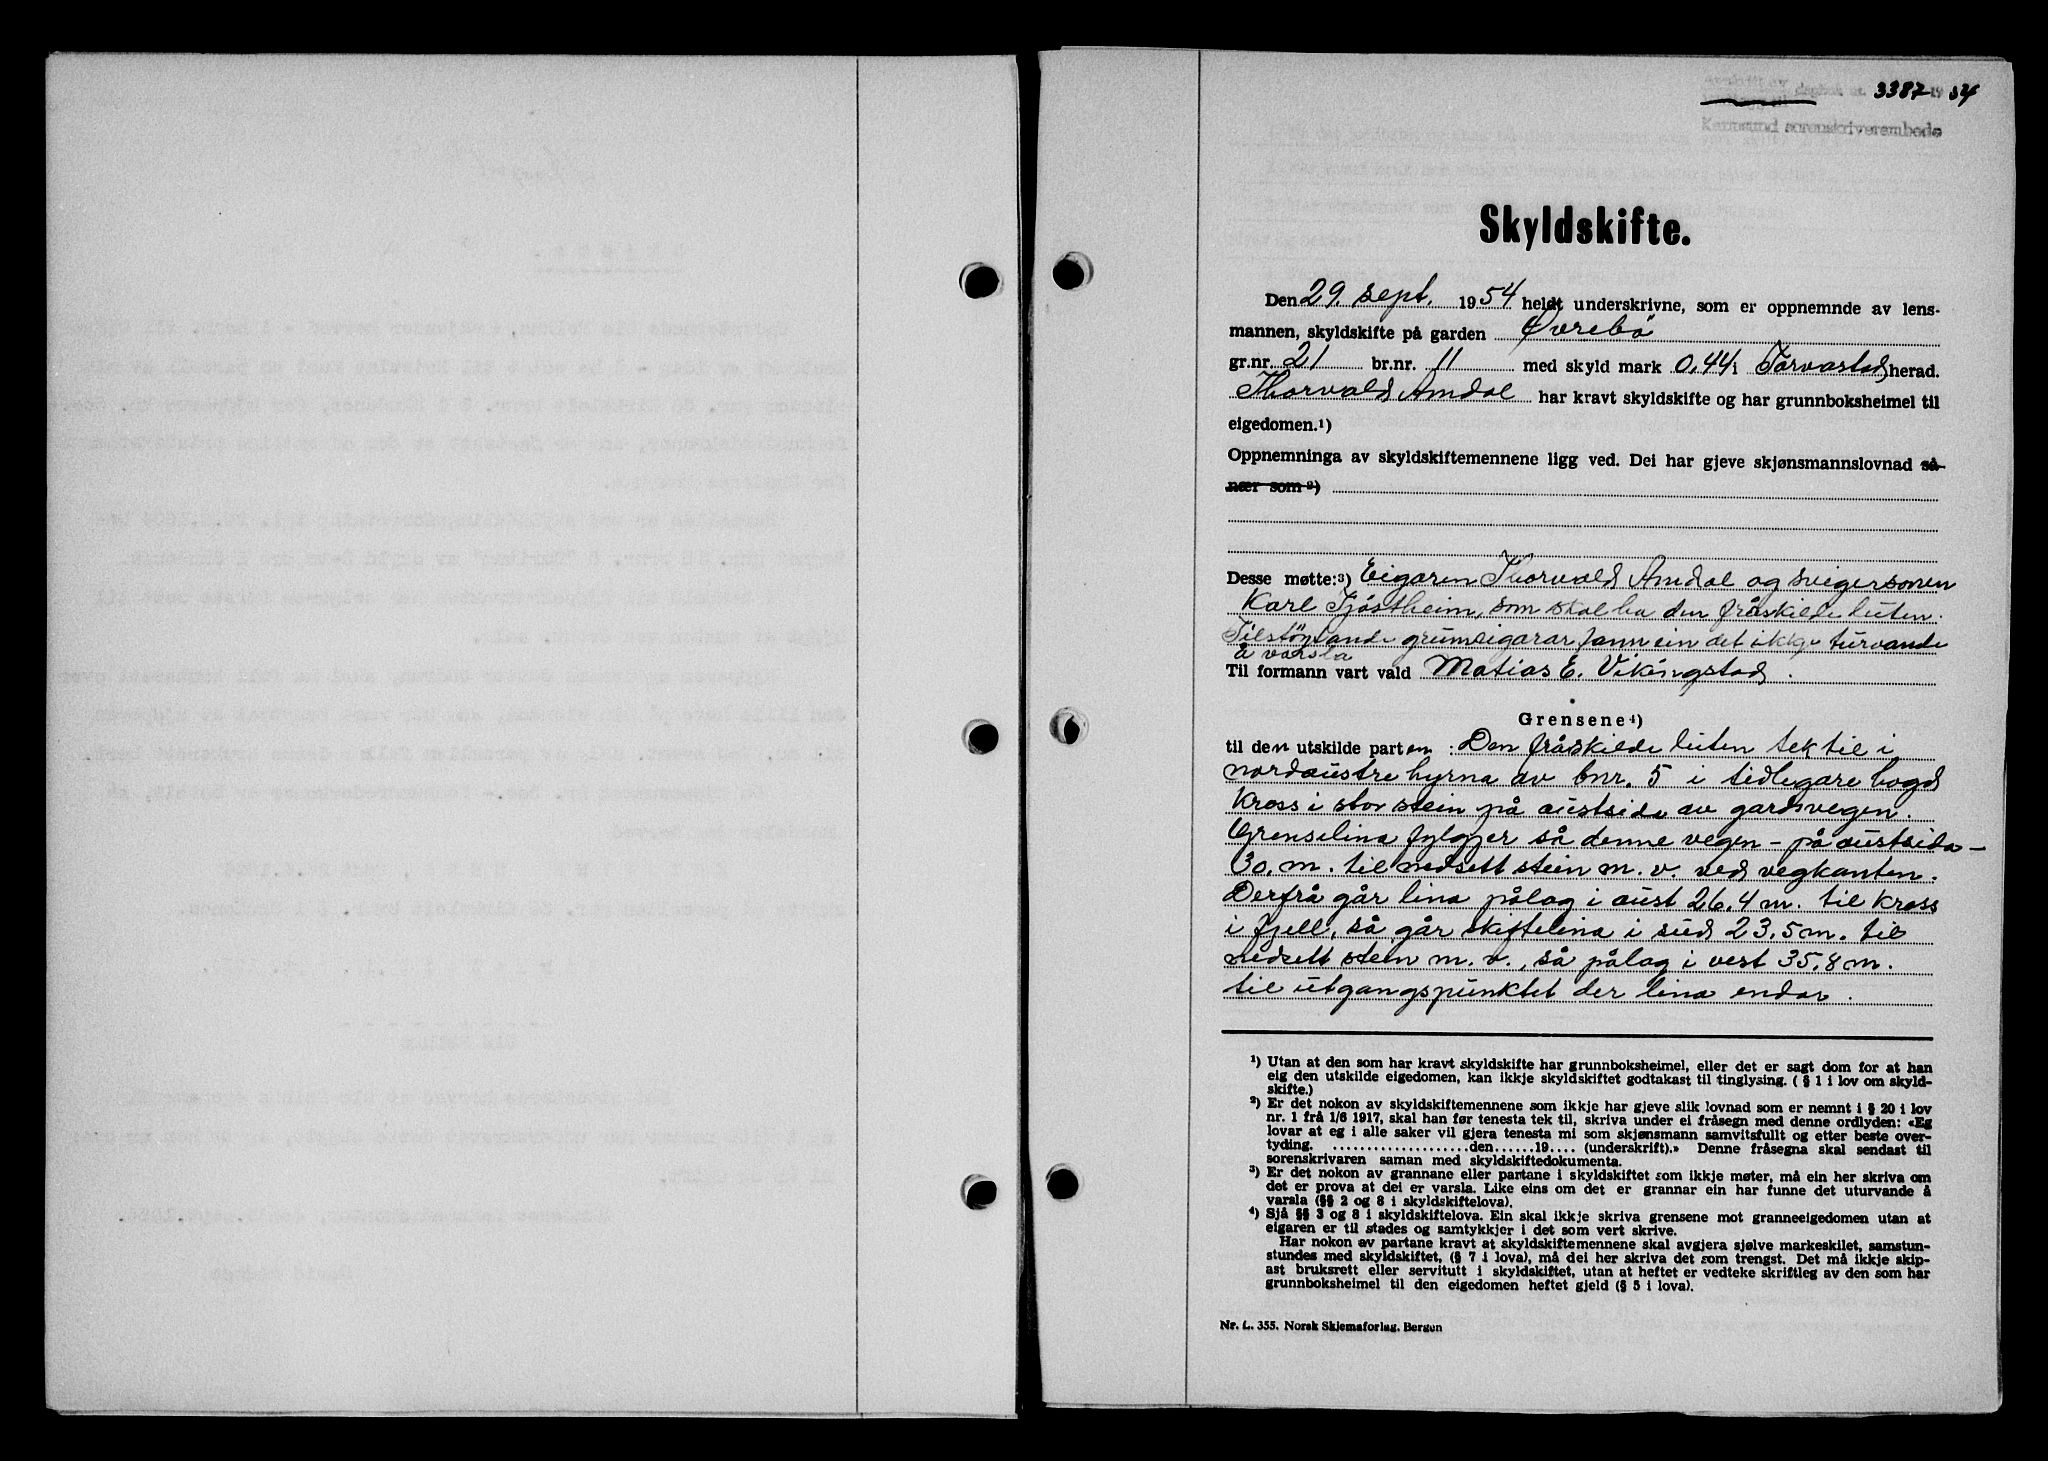 dagbok nr. 3387 19 54
Karmsund sorenskriverembede
Skyldskifte.
Den 29. sept. 1954 heldt underskrivne, som er oppnemnde av lens-
mannen, skyldskifte på garden Øvrebö
gr.nr. 21 br.nr. 11 med skyld mark 0,44 i Torvastad herad.
Thorvald Amdal har kravt skyldskifte og har grunnboksheimel til
eigedomen.¹)
Oppnemninga av skyldskiftemennene ligg ved. Dei har gjeve skjønsmannslovnad så-
nær som ²)
Desse møtte:³) Eigaren Thorvald Amdal og svigersonen
Karl Tjöstheim, som skal ha den fråskilde luten.
Tilstöytande grunneigarar fann ein det ikkje turvande
å varsla
Til formann vart vald Matias E. Vikingstad.
Grensene⁴)
til den utskilde parten: Den fråskilde luten tek til i
nordaustre hyrna av bnr. 5 i tidlegare hogd
kross i stor stein på austsida av gardsvegen.
Grenselina fylgjer så denne vegen - på austsida -
30. m. til nedsett stein m. v. ved vegkanten.
Derfrå går lina pålag i aust 26,4 m. til kross
i fjell, så går skiftelina i sud 23,5 m. til
nedsett stein m. v., så pålag i vest 35,8 m.
til utgangspunktet der lina endar.
¹) Utan at den som har kravt skyldskifte har grunnboksheimel, eller det er sagt dom for at han
eig den utskilde eigedomen, kan ikkje skyldskiftet godtakast til tinglysing. (§ 1 i lov om skyld-
skifte.)
²) Er det nokon av skyldskiftemennene som ikkje har gjeve slik lovnad som er nemnt i § 20 i lov
nr. 1 frå 1/6 1917, skal han før tenesta tek til, skriva under ei fråsegn med denne ordlyden: «Eg
lovar at eg i alle saker vil gjera tenesta mi som skjønsmann samvitsfullt og etter beste over-
tyding. ....................den......19.... (underskrift).» Denne fråsegna skal sendast til
sorenskrivaren saman med skyldskiftedokumenta.
³) Er det nokon av grannane eller partane i skyldskiftet som ikkje møter, må ein her skriva om
det er prova at dei er varsla. Like eins om det er grannar ein har funne det uturvande å
varsla (§§ 2 og 8 i skyldskiftelova).
⁴) Sjå §§ 3 og 8 i skyldskiftelova. Ein skal ikkje skriva grensene mot granneeigedomen utan at
eigaren er til stades og samtykkjer i det som vert skrive.
Har nokon av partane kravt at skyldskiftemennene skal avgjera sjølve markeskilet, samstun-
stundes med skyldskiftet, (§ 7 i lova), må dei her skriva det som trengst. Det må ikkje skip-
ast bruksrett eller servitutt i skyldskiftet, utan at heftet er vedteke skriftleg av den som har
grunnboksheimel til den eigedomen heftet gjeld (§ 5 i lova).
Nr. L. 355. Norsk Skjemaforlag, Bergen